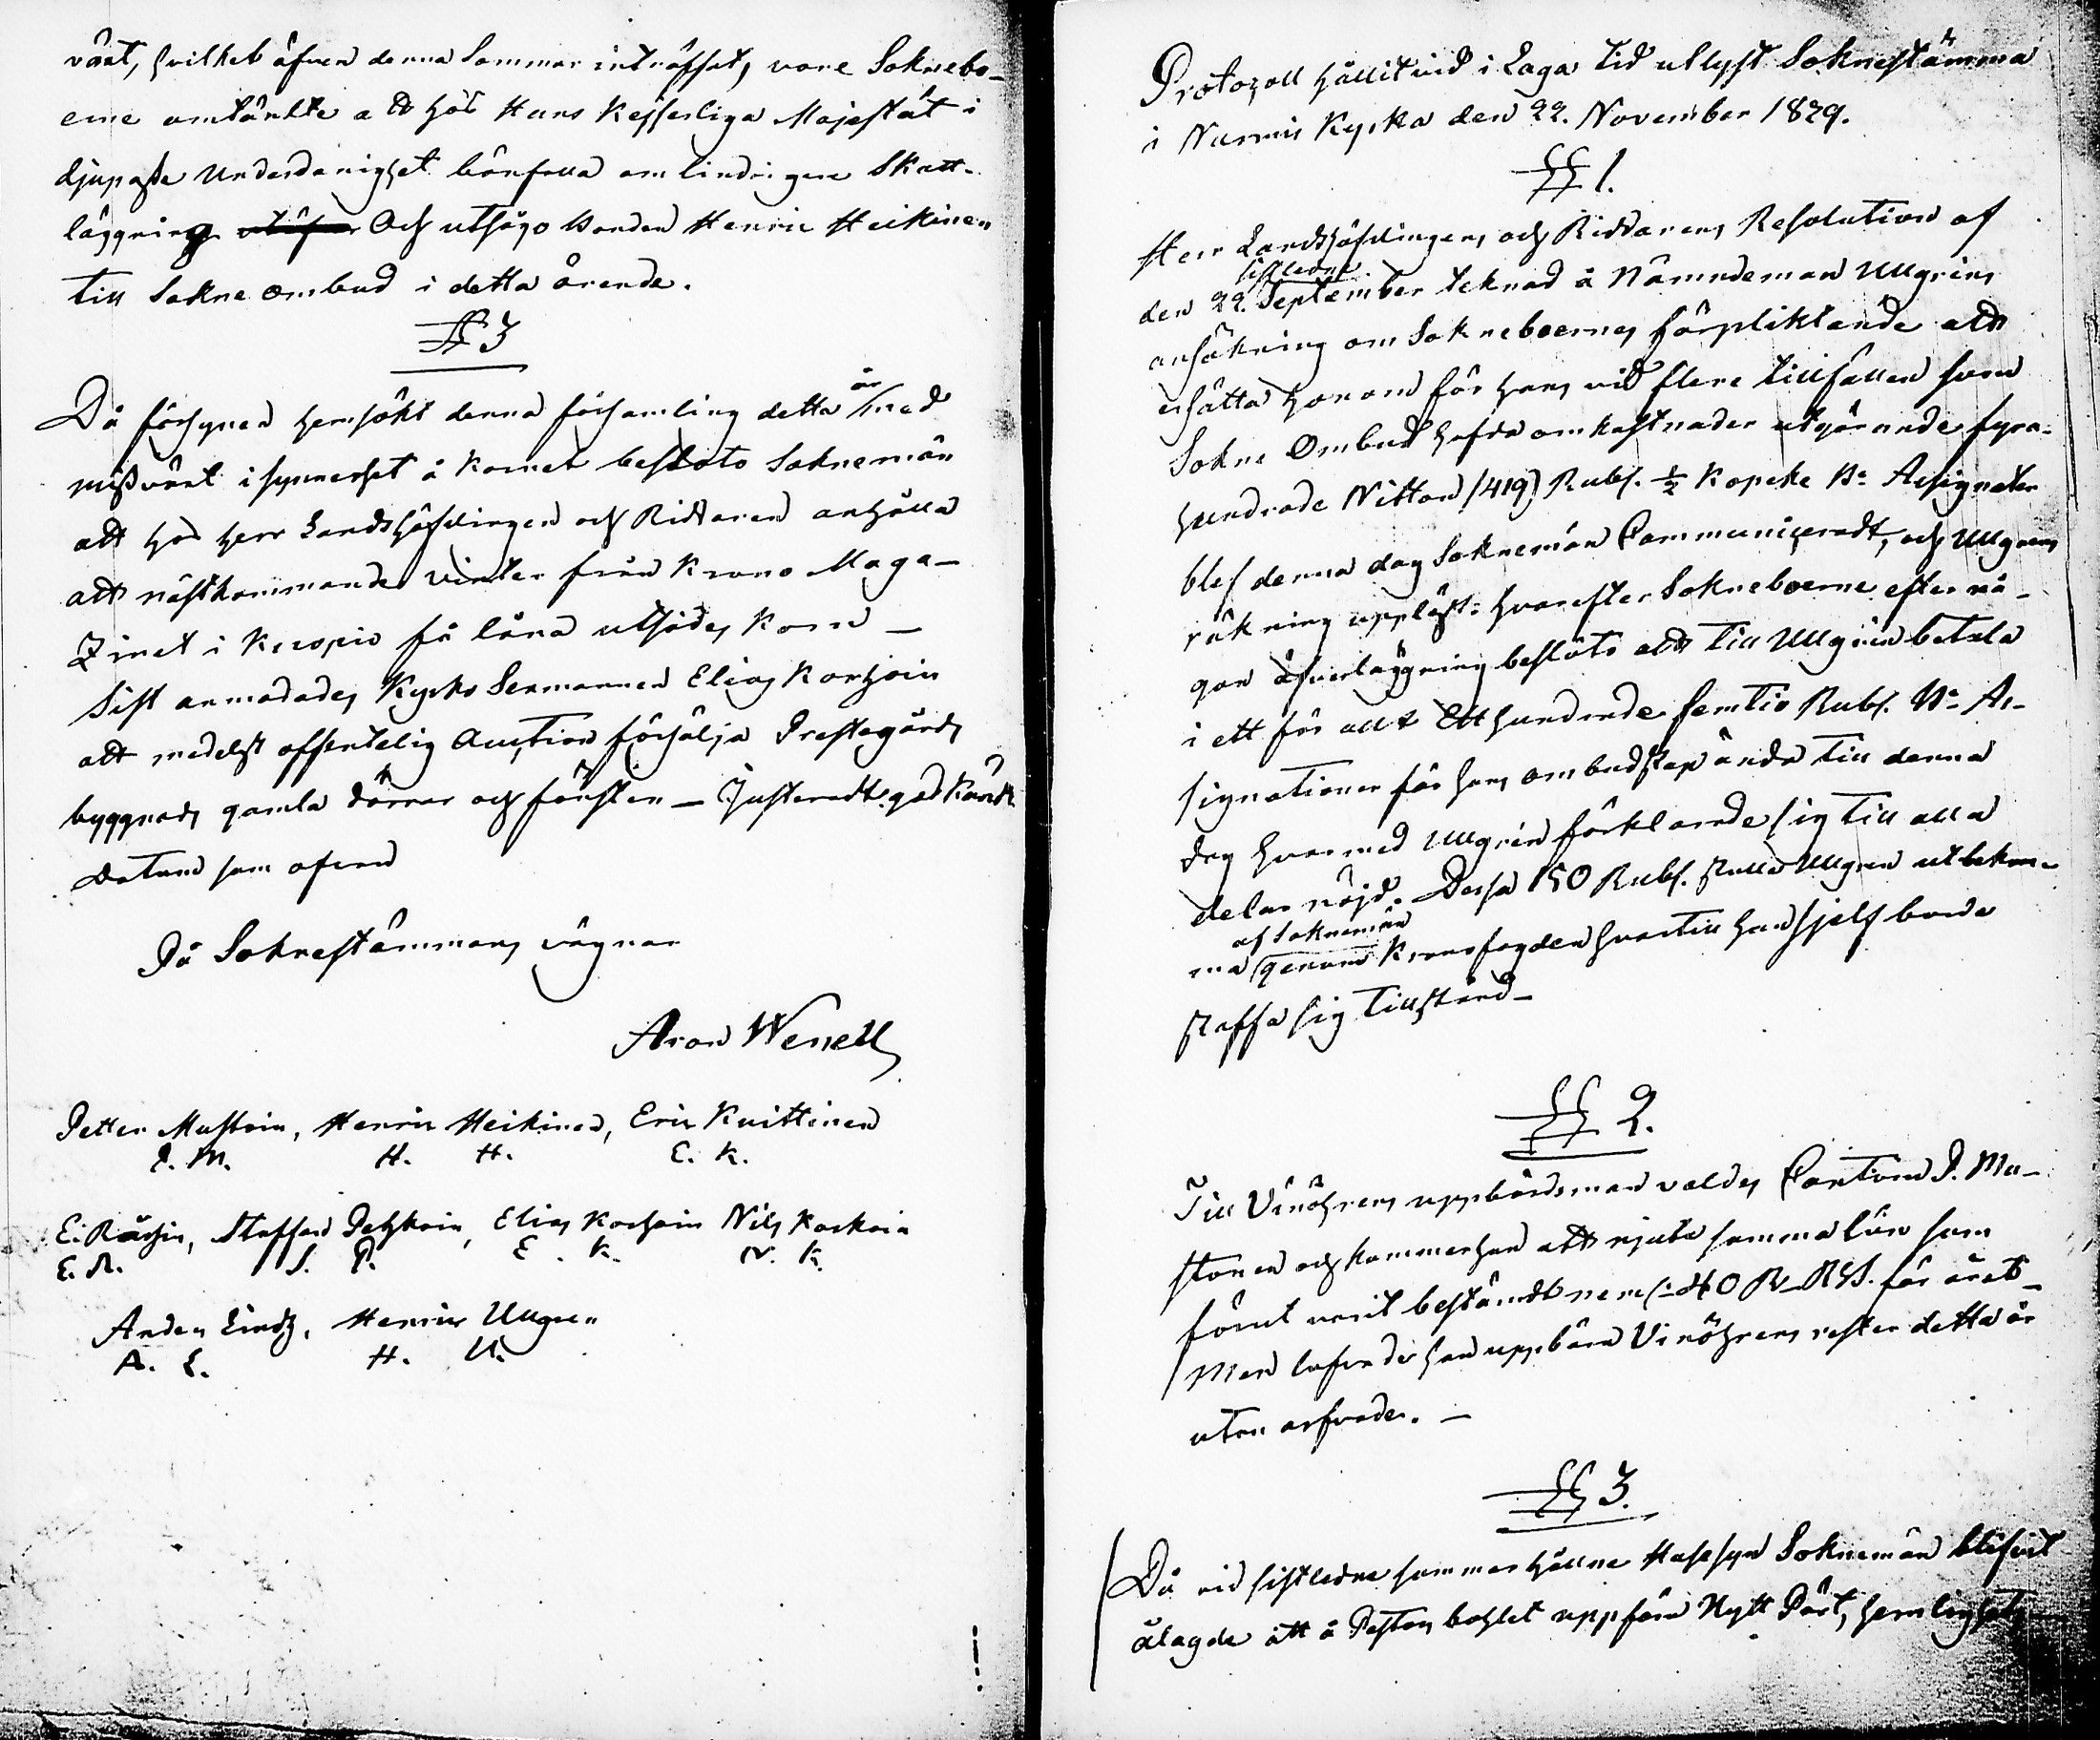 växt, hvilket äfven denna Sommar inträffat, vore Soknebo-
erne omtänkte att hos Hans Kejserliga Majestät i
djupaste Underdånighet bönfalla om lindrigare Skatt-
läggning Och utsågo bonden Henric Heikinen
till Sokne ombud i detta ärende.
§ 3
Då försynen hemsökt denna församling detta år med
missväxt i synnerhet å kornet beslöto Soknemän
att hos herr Landshöfdingen och Riddaren anhålla
att nästkommande vinter från Krono Maga-
Zinet i Kuopio få låna utsädes korn —
Sist anmodades Kyrko Sexmannen Elias Korhoin
att medelst offentelig Auction försälja Prestegårds
byggnads gamla dörrar och fönster — Justeradt godkändt
datum som ofvan
På Soknestämmans vägnar
Aron Wenell
Petter Mustoin, Henric Heikinen, Eric Knittinen
P. M. H. H. E. K.
E. Räsäin, Staffan Petzkoin, Elias Korhoin Nils Koskoin
E. R. S. P. E. K. N. K.
Anders Lindz, Henric Ullgren
A. L. H. U.
Protocoll hållit vid i Laga tid utlyst Soknestämma
i Nurmis Kyrka den 22. November 1829.
§§ 1.
Herr Landshöfdingens och Riddarens Resolution af
den 22. sistledne September teknad å Nämndeman Ullgrens
ansökning om Sokneboernes förpliktande att
ersätta honom för hans vid flere tillfällen som
Sokne Ombud hafda omkostnader utgörande fyra-
hundrade Nitton (419) Rub. ½ Kopeke Bo Assignater
blef denna dag Soknemän Communiceradt, och Ullgrens
räkning uppläst: hvarefter Sokneboerne efter nå-
gon öfverläggning beslöto att till Ullgren betala
i ett för allt Etthundrade femtio Rub. Bo As-
signationer för hans ombudskap ända till denna
dag hvarmed Ullgren förklarade sig till alla
delar nöjd. Dessa 150 Rub. skulle Ullgren utbekom-
ma af Soknemän genom Kronofogden hvartill han sjelf borde
skaffa sig tillstånd —
§§ 2.
Till Vinöhrens uppbördsman valdes Cantorn P. Mu-
stonen och kommer han att njuta samma lön som
förut varit bestämdt nem: 40 R. för året —
Men lofvade han uppbära Vinöhrens rester detta år
utan arfvode. —
§§ 3.
Då vid sistledne sommar hållne Husesyn Soknemän blifvit
ålagde att å Pastors bohlet uppföra Nytt Pört, hemlighets